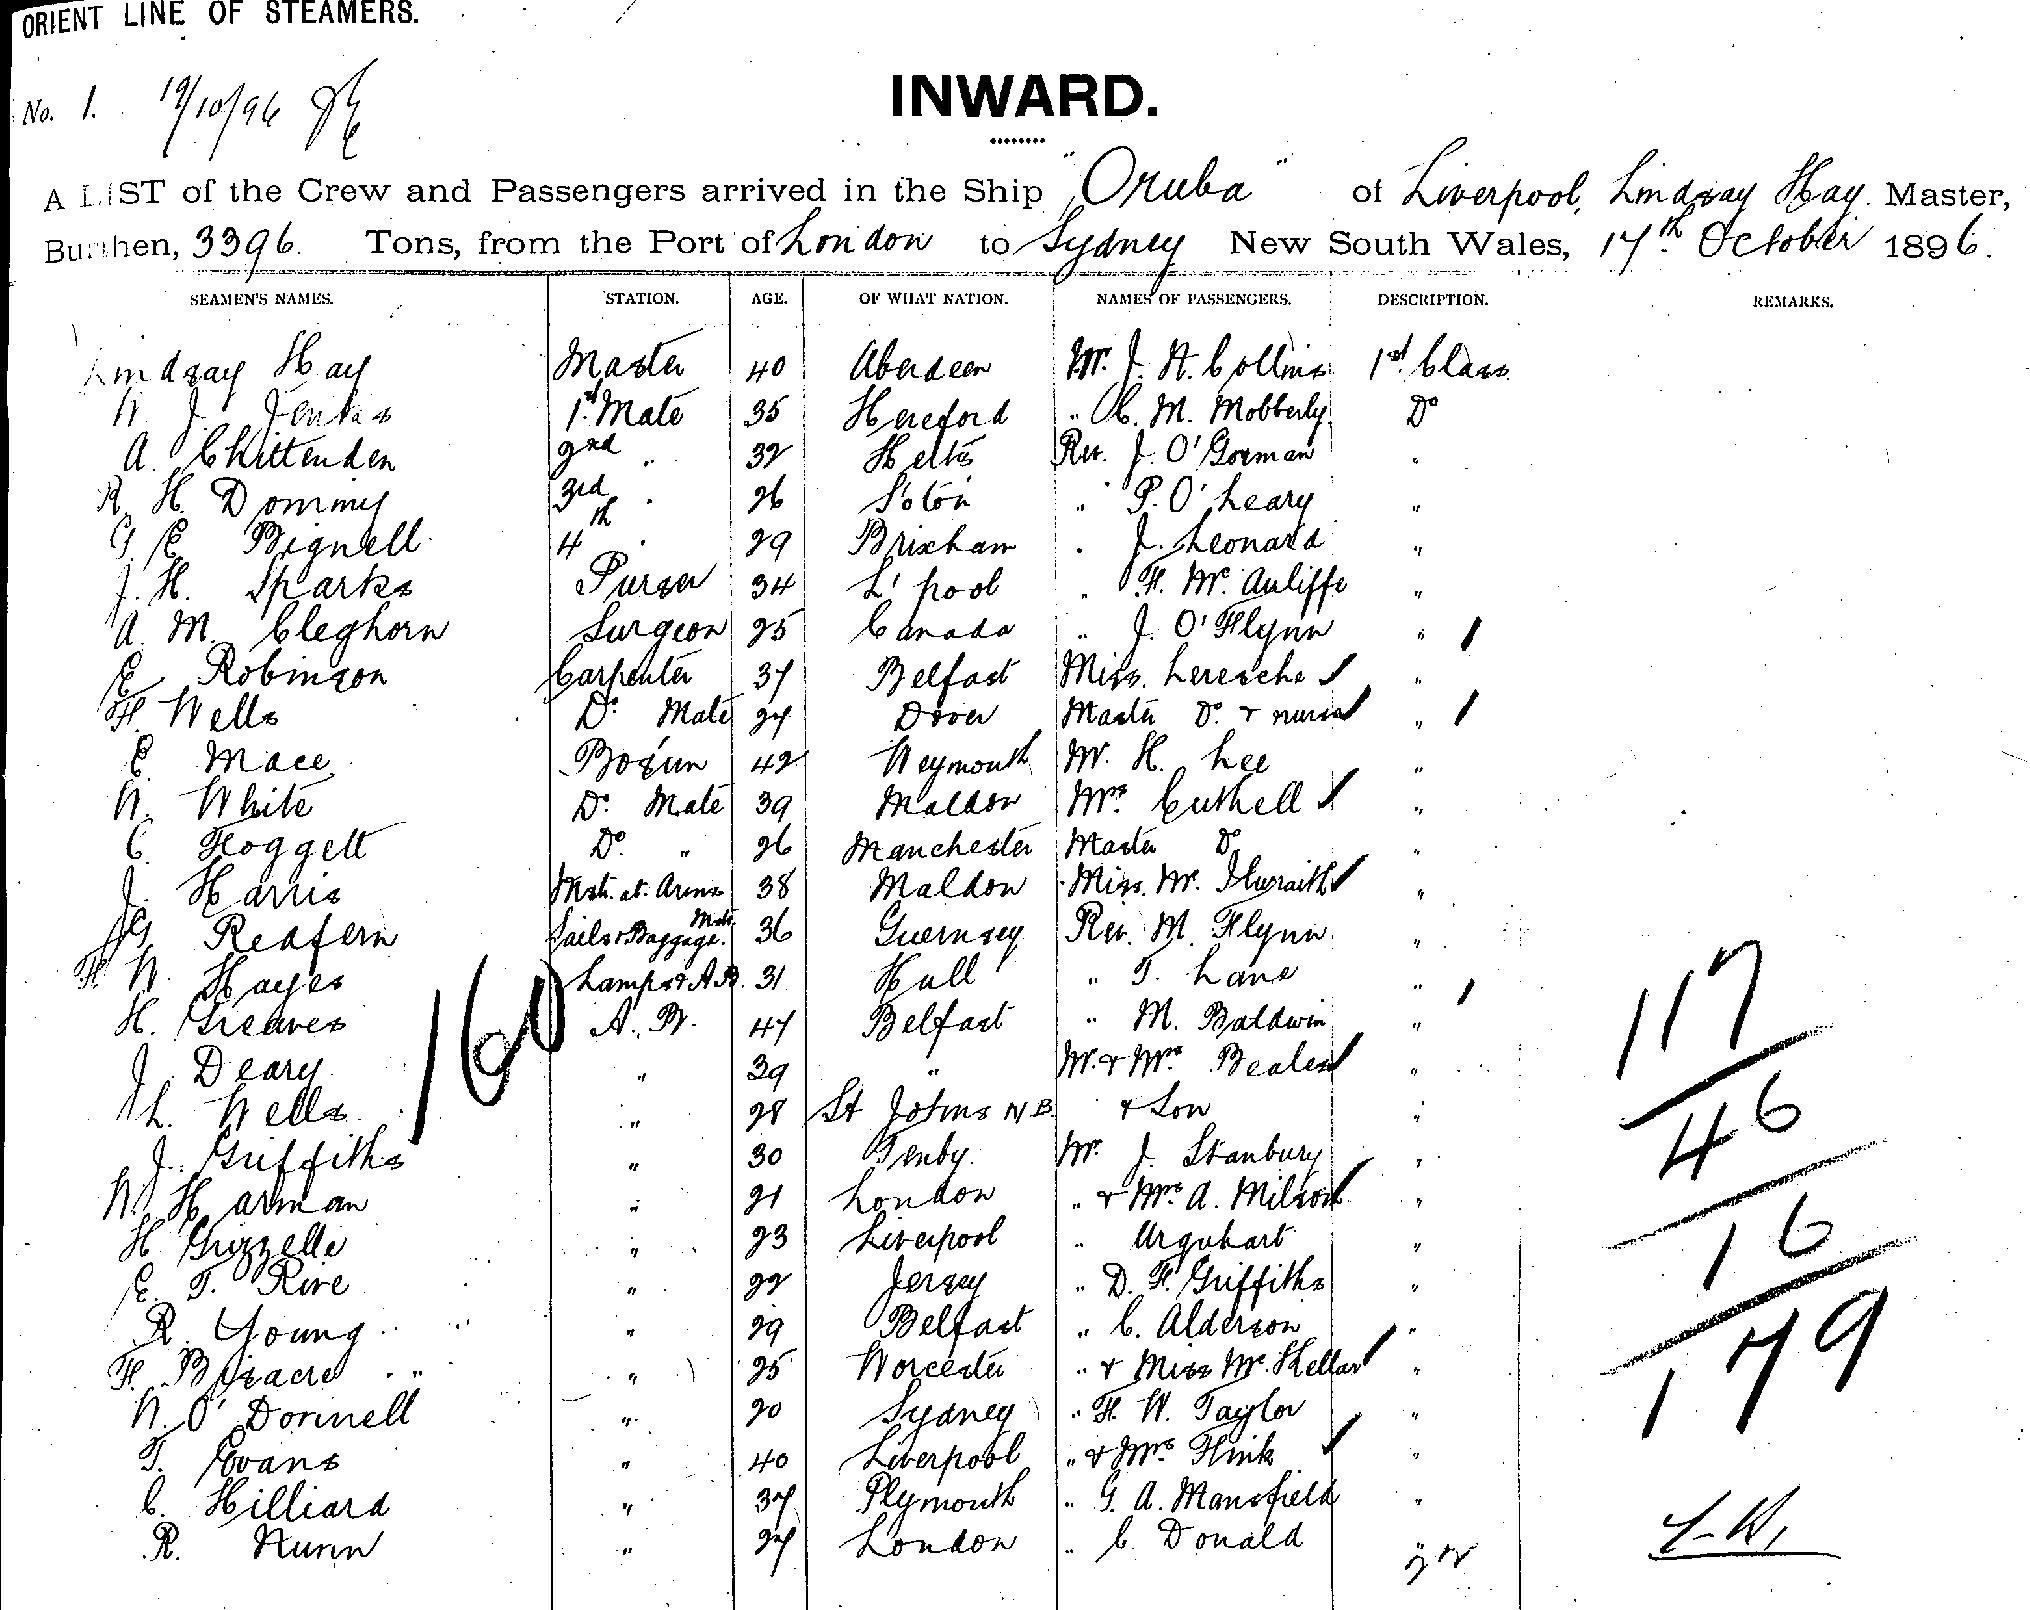 ORIENT LINE OF STEAMERS.
No. 1. 19/10/96
INWARD.
A LIST of the Crew and Passengers arrived in the Ship "Oruba" of Liverpool, Lindsay Hay Master,
Burthen, 3396. Tons, from the Port of London to Sydney New South Wales, 17th October 1896.
SEAMEN'S NAMES. STATION. AGE. OF WHAT NATION. NAMES OF PASSENGERS. DESCRIPTION. REMARKS.
Lindsay Hay Master 40 Aberdeen Mr. J. H. Collins 1st Class
W. J. Jenks 1st Mate 35 Hereford " C. M. Mobberly Do
A. Chittenden 2nd " 32 Herts Rev. J. O'Gorman "
R. H. Dominy 3rd " 26 S'oton " P. O'Leary "
G. E. Bignell 4th " 29 Brixham " J. Leonard "
J. H. Sparks Purser 34 L'pool " F. McAuliffe "
A. M. Cleghorn Surgeon 25 Canada " J. O'Flynn "
E Robinson Carpenter 37 Belfast Miss. Leresche "
F. Wells Do. Mate 27 Dover Master Do. & nurse "
E. Mace Bosun 42 Weymouth Mr. H. Lee "
W. White Do. Mate 39 Maldon Mrs. Cuthell "
C. Hoggett Do. " 26 Manchester Master Do "
J. Harris Mstr. at. Arms 38 Maldon Miss. McIlwraith "
Redfern Sails & Baggage. Mstr 36 Guernsey Rev. M. Flynn "
F W. Hayes Lamps & A.B. 31 Hull " T. Lane "
H. Greaves A. B. 47 Belfast " M. Baldwin "
J. Deary " 39 " Mr. & Mrs Beales "
L. Wells " 28 St Johns N B. & Son "
J. Griffiths " 30 Tenby. Mr. J. Stanbury "
W Harman " 21 London " & Mrs. A. Milson "
H Grizzelle " 23 Liverpool " Urquhart "
E. T. Rive " 22 Jersey " D. F. Griffiths "
R. Young " 29 Belfast " C. Alderson "
F. Bizacre " 25 Worcester " & Miss McKellar "
W. O'Donnell " 20 Sydney " F. W. Taylor "
T. Evans " 40 Liverpool " & Mrs Fink "
C. Hilliard " 37 Plymouth " G. A. Mansfield "
R. Nunn " 27 London " C Donald "
160
117
46
16
179